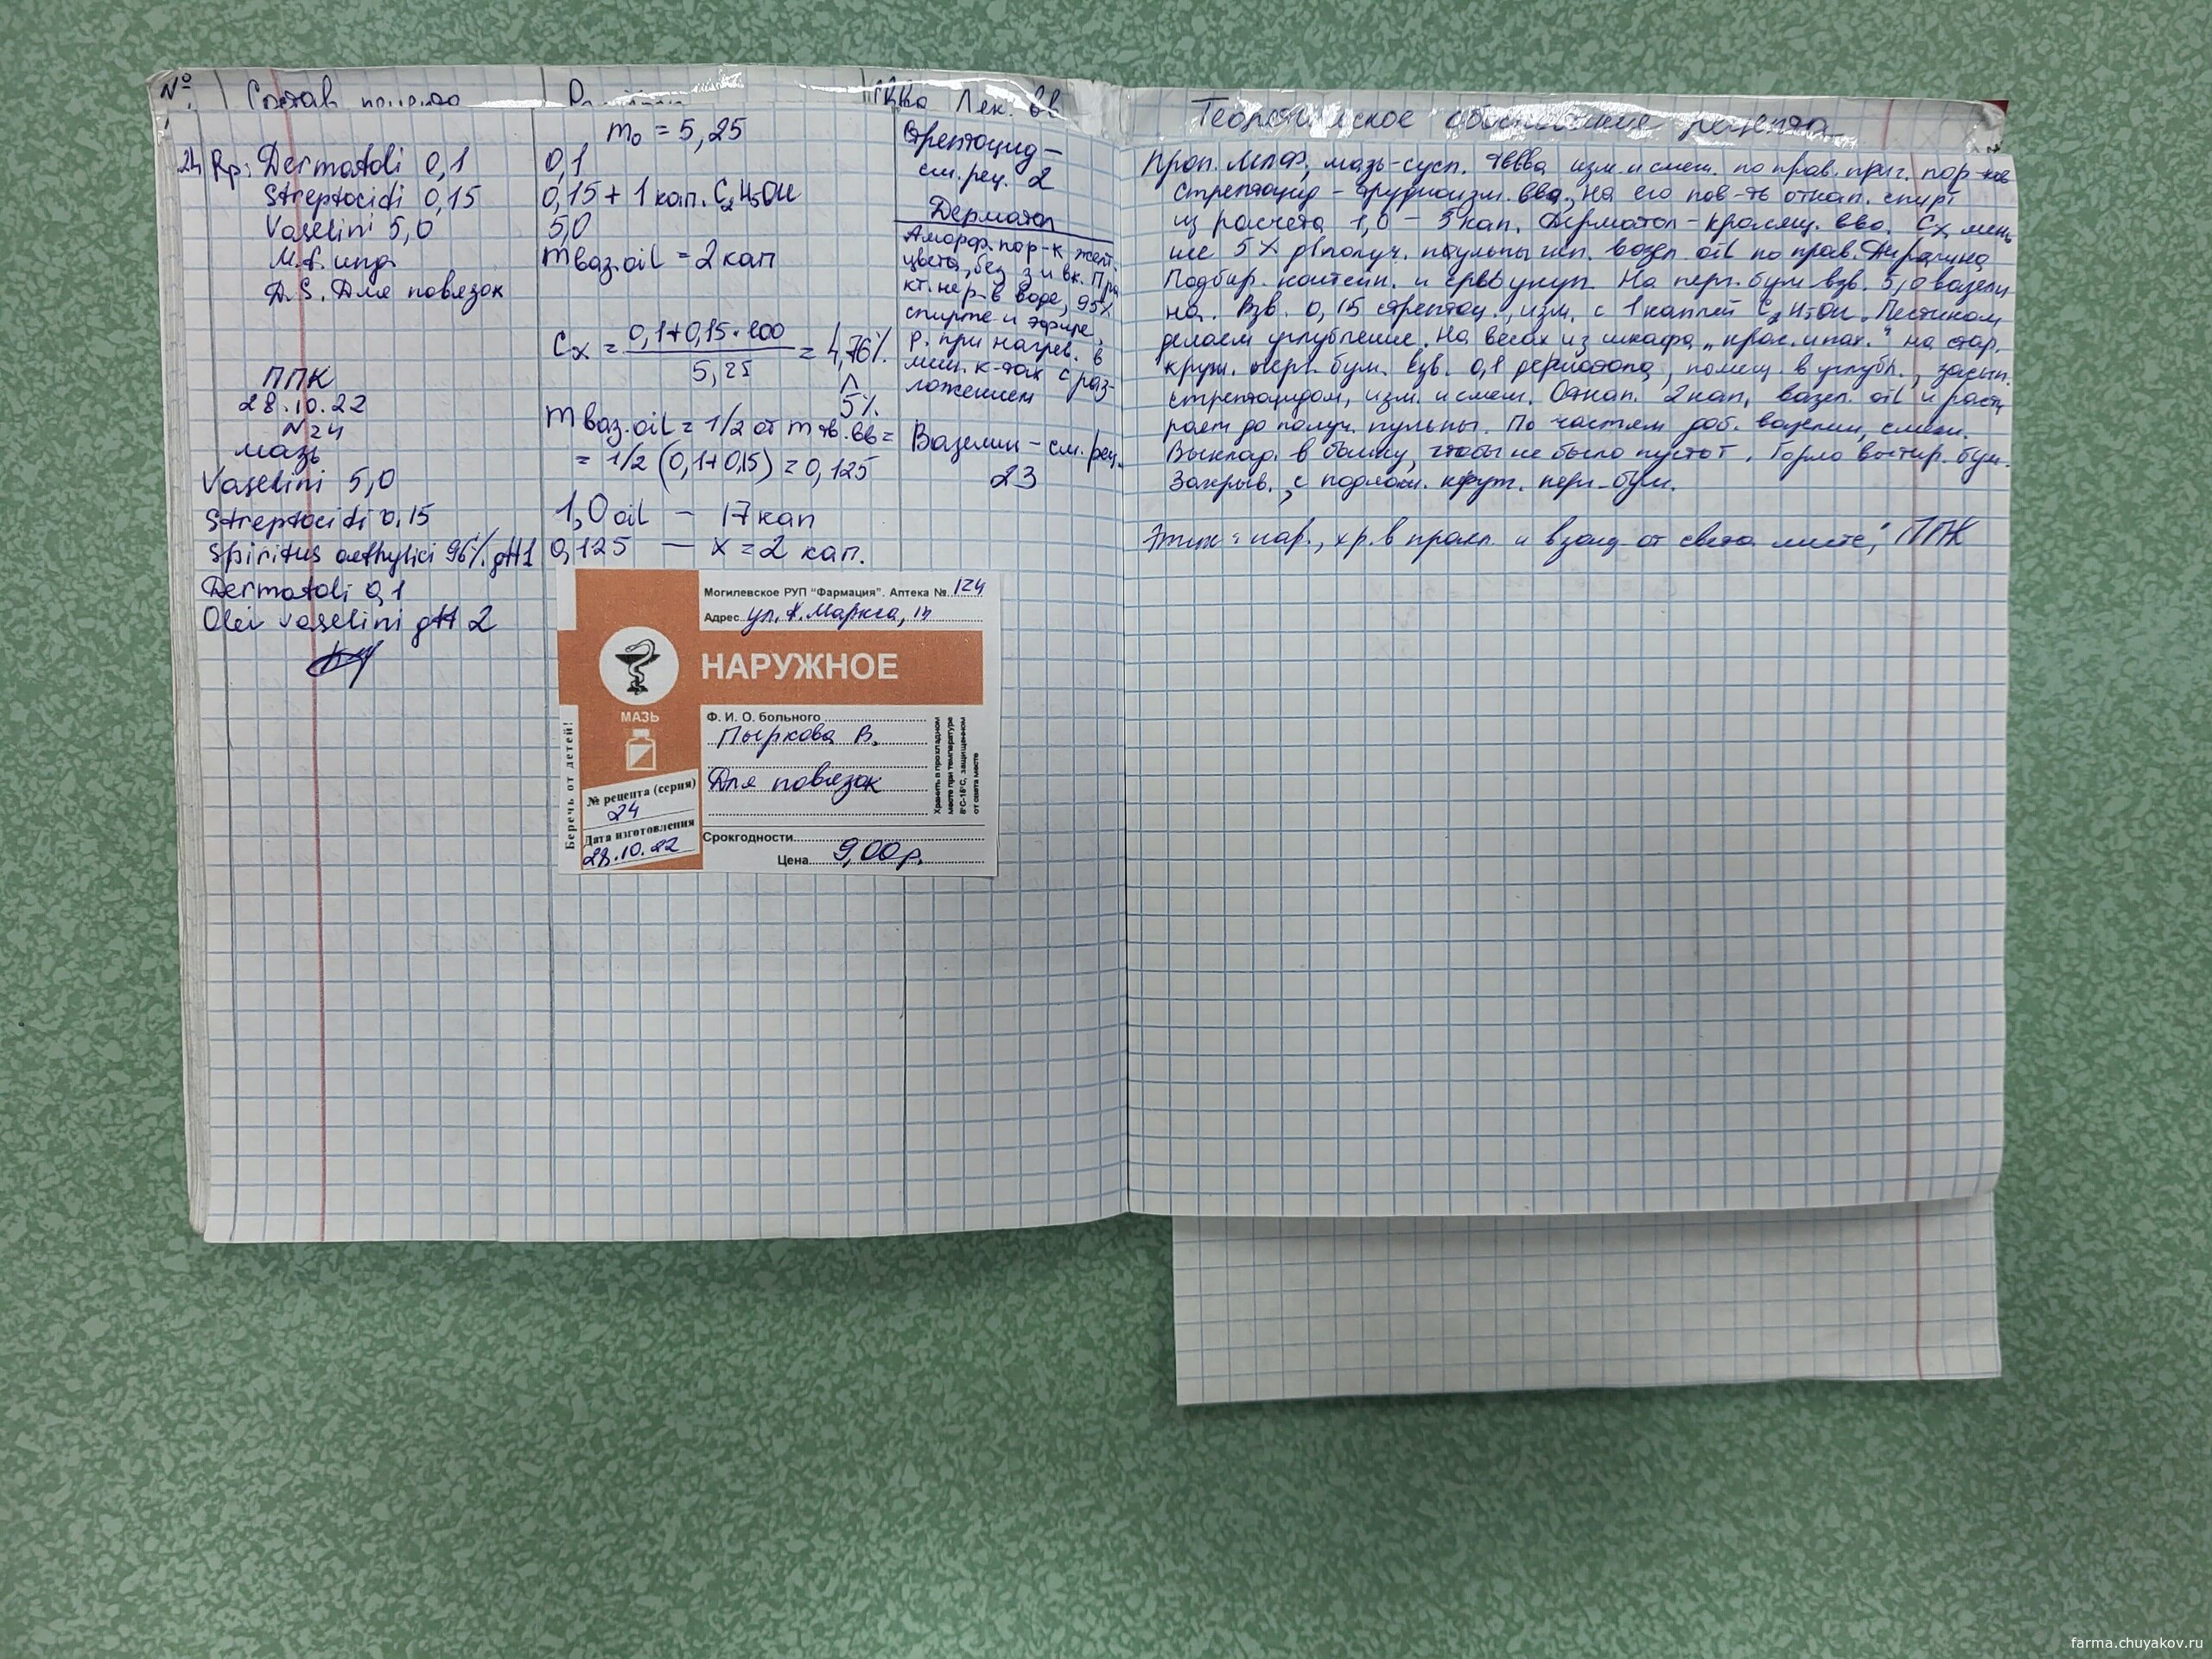 № Состав
24 Rp: Dermatoli 0,1
Streptocidi 0,15
Vaselini 5,0
M.f. ung
D.S. Для повязок
ППК
28.10.22
N 24
мазь
Vaselini 5,0
Streptocidi 0,15
Spiritus aethylici 96% gtt 1
Dermatoli 0,1
Olei vaselini gtt 2
m₀ = 5,25
0,1
0,15 + 1 кап. C₂H₅OH
5,0
m ваз.oil = 2 кап
Cx = 0,1+0,15·100 / 5,25 = 4,76%
^
5%
m ваз.oil = 1/2 от m тв.вв =
= 1/2 (0,1+0,15) = 0,125
1,0 oil — 17 кап
0,125 — x = 2 кап.
Лек. вв
Стрептоцид —
см. рец. 2
Дерматол
Аморф. пор-к желт.
цвета, без з и вк. Пра
кт. нер-в воде, 95%
спирте и эфире,
р. при нагрев. в
мин. к-тах с раз-
ложением
Вазелин - см. рец.
23
Могилевское РУП "Фармация". Аптека № 124
Адрес ул. К. Маркса,
НАРУЖНОЕ
МАЗЬ
Беречь от детей!
Ф. И. О. больного
Пыркова В.
Для повязок
Хранить в прохладном
месте при температуре
8°С-15°С, защищенном
от света месте
№ рецепта (серия)
24
Дата изготовления
28.10.22
Срок годности
Цена 9,00р.
Теоретическое обоснование рецепта
Проп. МЛФ, мазь-сусп. Твва изм. и смеш. по прав. приг. пор-ков
Стрептоцид - трудноизм. вво, на его пов-ть откап. спирт
из расчета 1,0 - 5 кап. Дерматол - красящ. вво. Cx мень
ше 5% д/получ. пульпы исп. вазел. oil по прав. Дерягина
Подбир. контейн. и ср-во укуп. На перг. бум взв. 5,0 вазели
на. Взв. 0,15 стрептоц., изм. с 1 каплей C₂H₅OH. Пестиком
делаем углубление. На весах из шкафа "крас. и пах." на стар.
круж. перг. бум. взв. 0,1 дерматола, помещ. в углубл., засып.
стрептоцидом, изм. и смеш. Откап. 2 кап. вазел. oil и расти
рает до получ. пульпы. По частям доб. вазелин, смеш.
Выклад. в банку, чтобы не было пустот. Горло вытир. бум.
Закрыв., с подлож. круж. перг. бум.
Этик: нар., хр. в прохл. и в защ от света месте, ППК
farma.chuyakov.ru